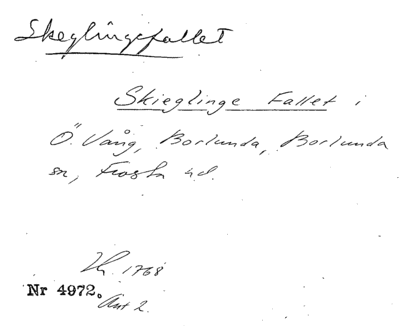 Skeglingefallet
Skieglinge Fallet i
Ö. Vång, Borlunda, Borlunda
sn, Frosta hd.
1768
Nr 4972.
Akt 2.